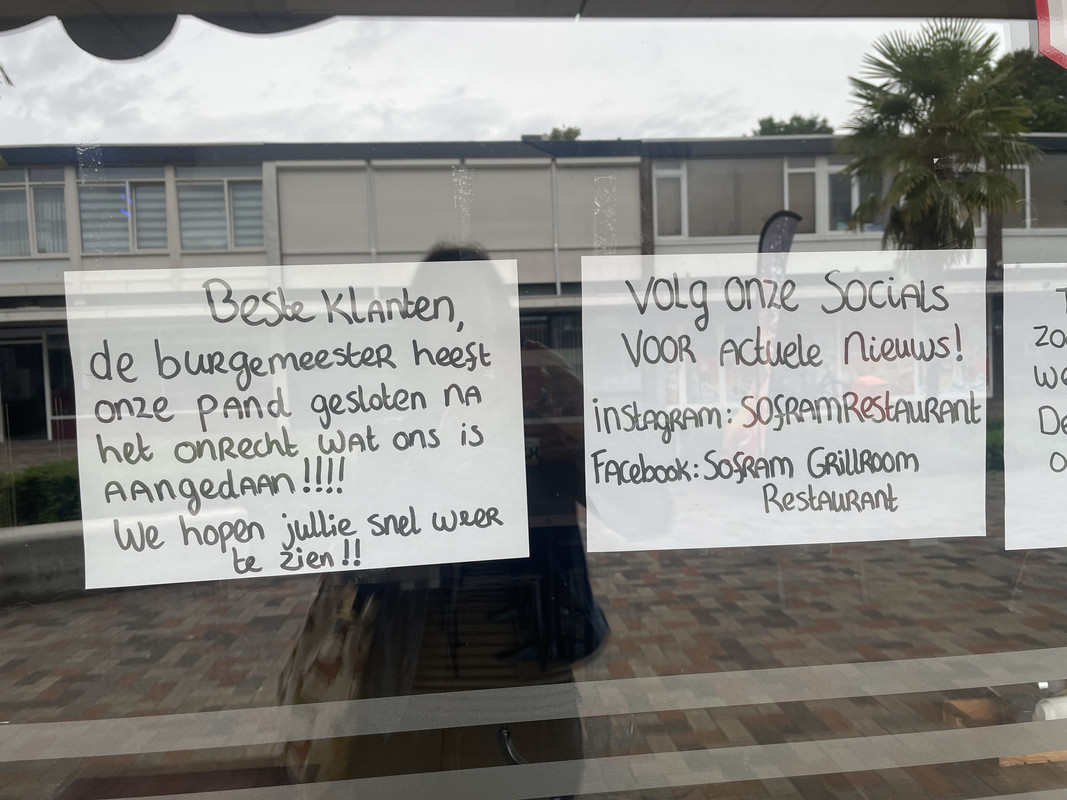 Beste klanten,
de burgemeester heeft
onze pand gesloten na
het onrecht wat ons is
aangedaan!!!!
We hopen jullie snel weer
te zien!!
Volg onze Socials
voor actuele nieuws!
instagram: soframrestaurant
Facebook: Sofram Grillroom
Restaurant